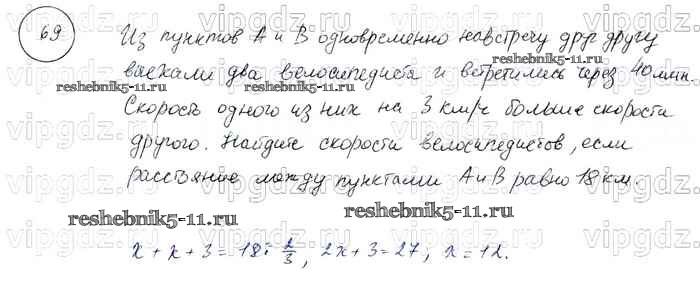 69
Из пунктов А и В одновременно навстречу друг другу
выехали два велосипедиста и встретились через 40 мин.
Скорость одного из них на 3 км/ч больше скорости
другого. Найдите скорости велосипедистов, если
расстояние между пунктами А и В равно 18 км.
x + x + 3 = 18 : 2/3, 2x + 3 = 27, x = 12.
reshebnik5-11.ru
reshebnik5-11.ru
reshebnik5-11.ru
reshebnik5-11.ru
reshebnik5-11.ru
vipgdz.com